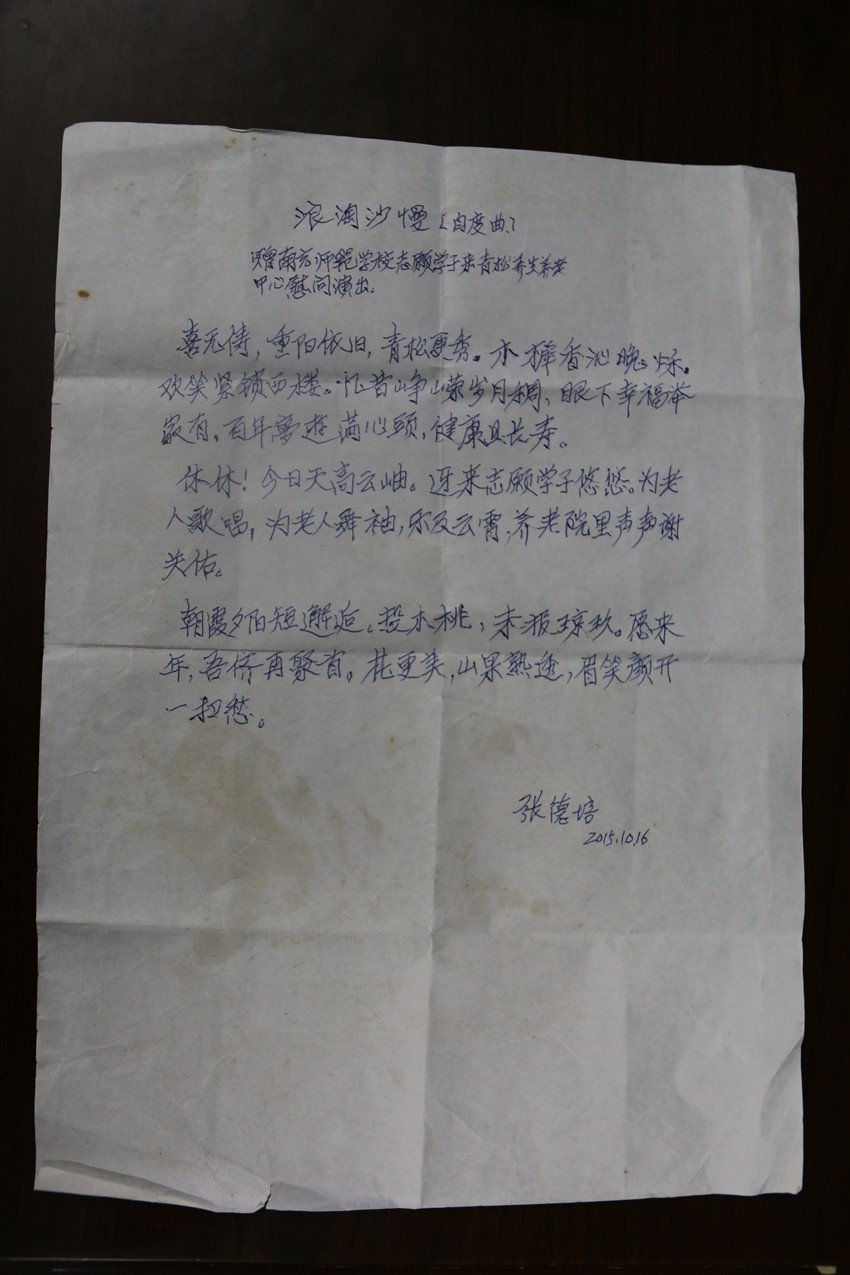 浪淘沙慢(自度曲)
赠南京师範学校志愿学子来青松养生养老
中心慰问演出.
喜无俦,重阳依旧,青松更秀。木樨香沁晚
欢笑紧锁西楼。忆昔峥嵘岁月稠,眼下幸福举
家有。百年梦游满心头,健康且长寿。
休休!今日天高云岫。迓来志愿学子悠悠。为老
人歌唱,为老人舞袖,乐及云霄,养老院里声声谢
关佑。
朝霞夕阳短邂逅。投木桃,未报琼玖。愿来
年,吾侪再聚首。花更美,山果熟透,眉笑颜开
一扫愁。
张德培
2015.10.16